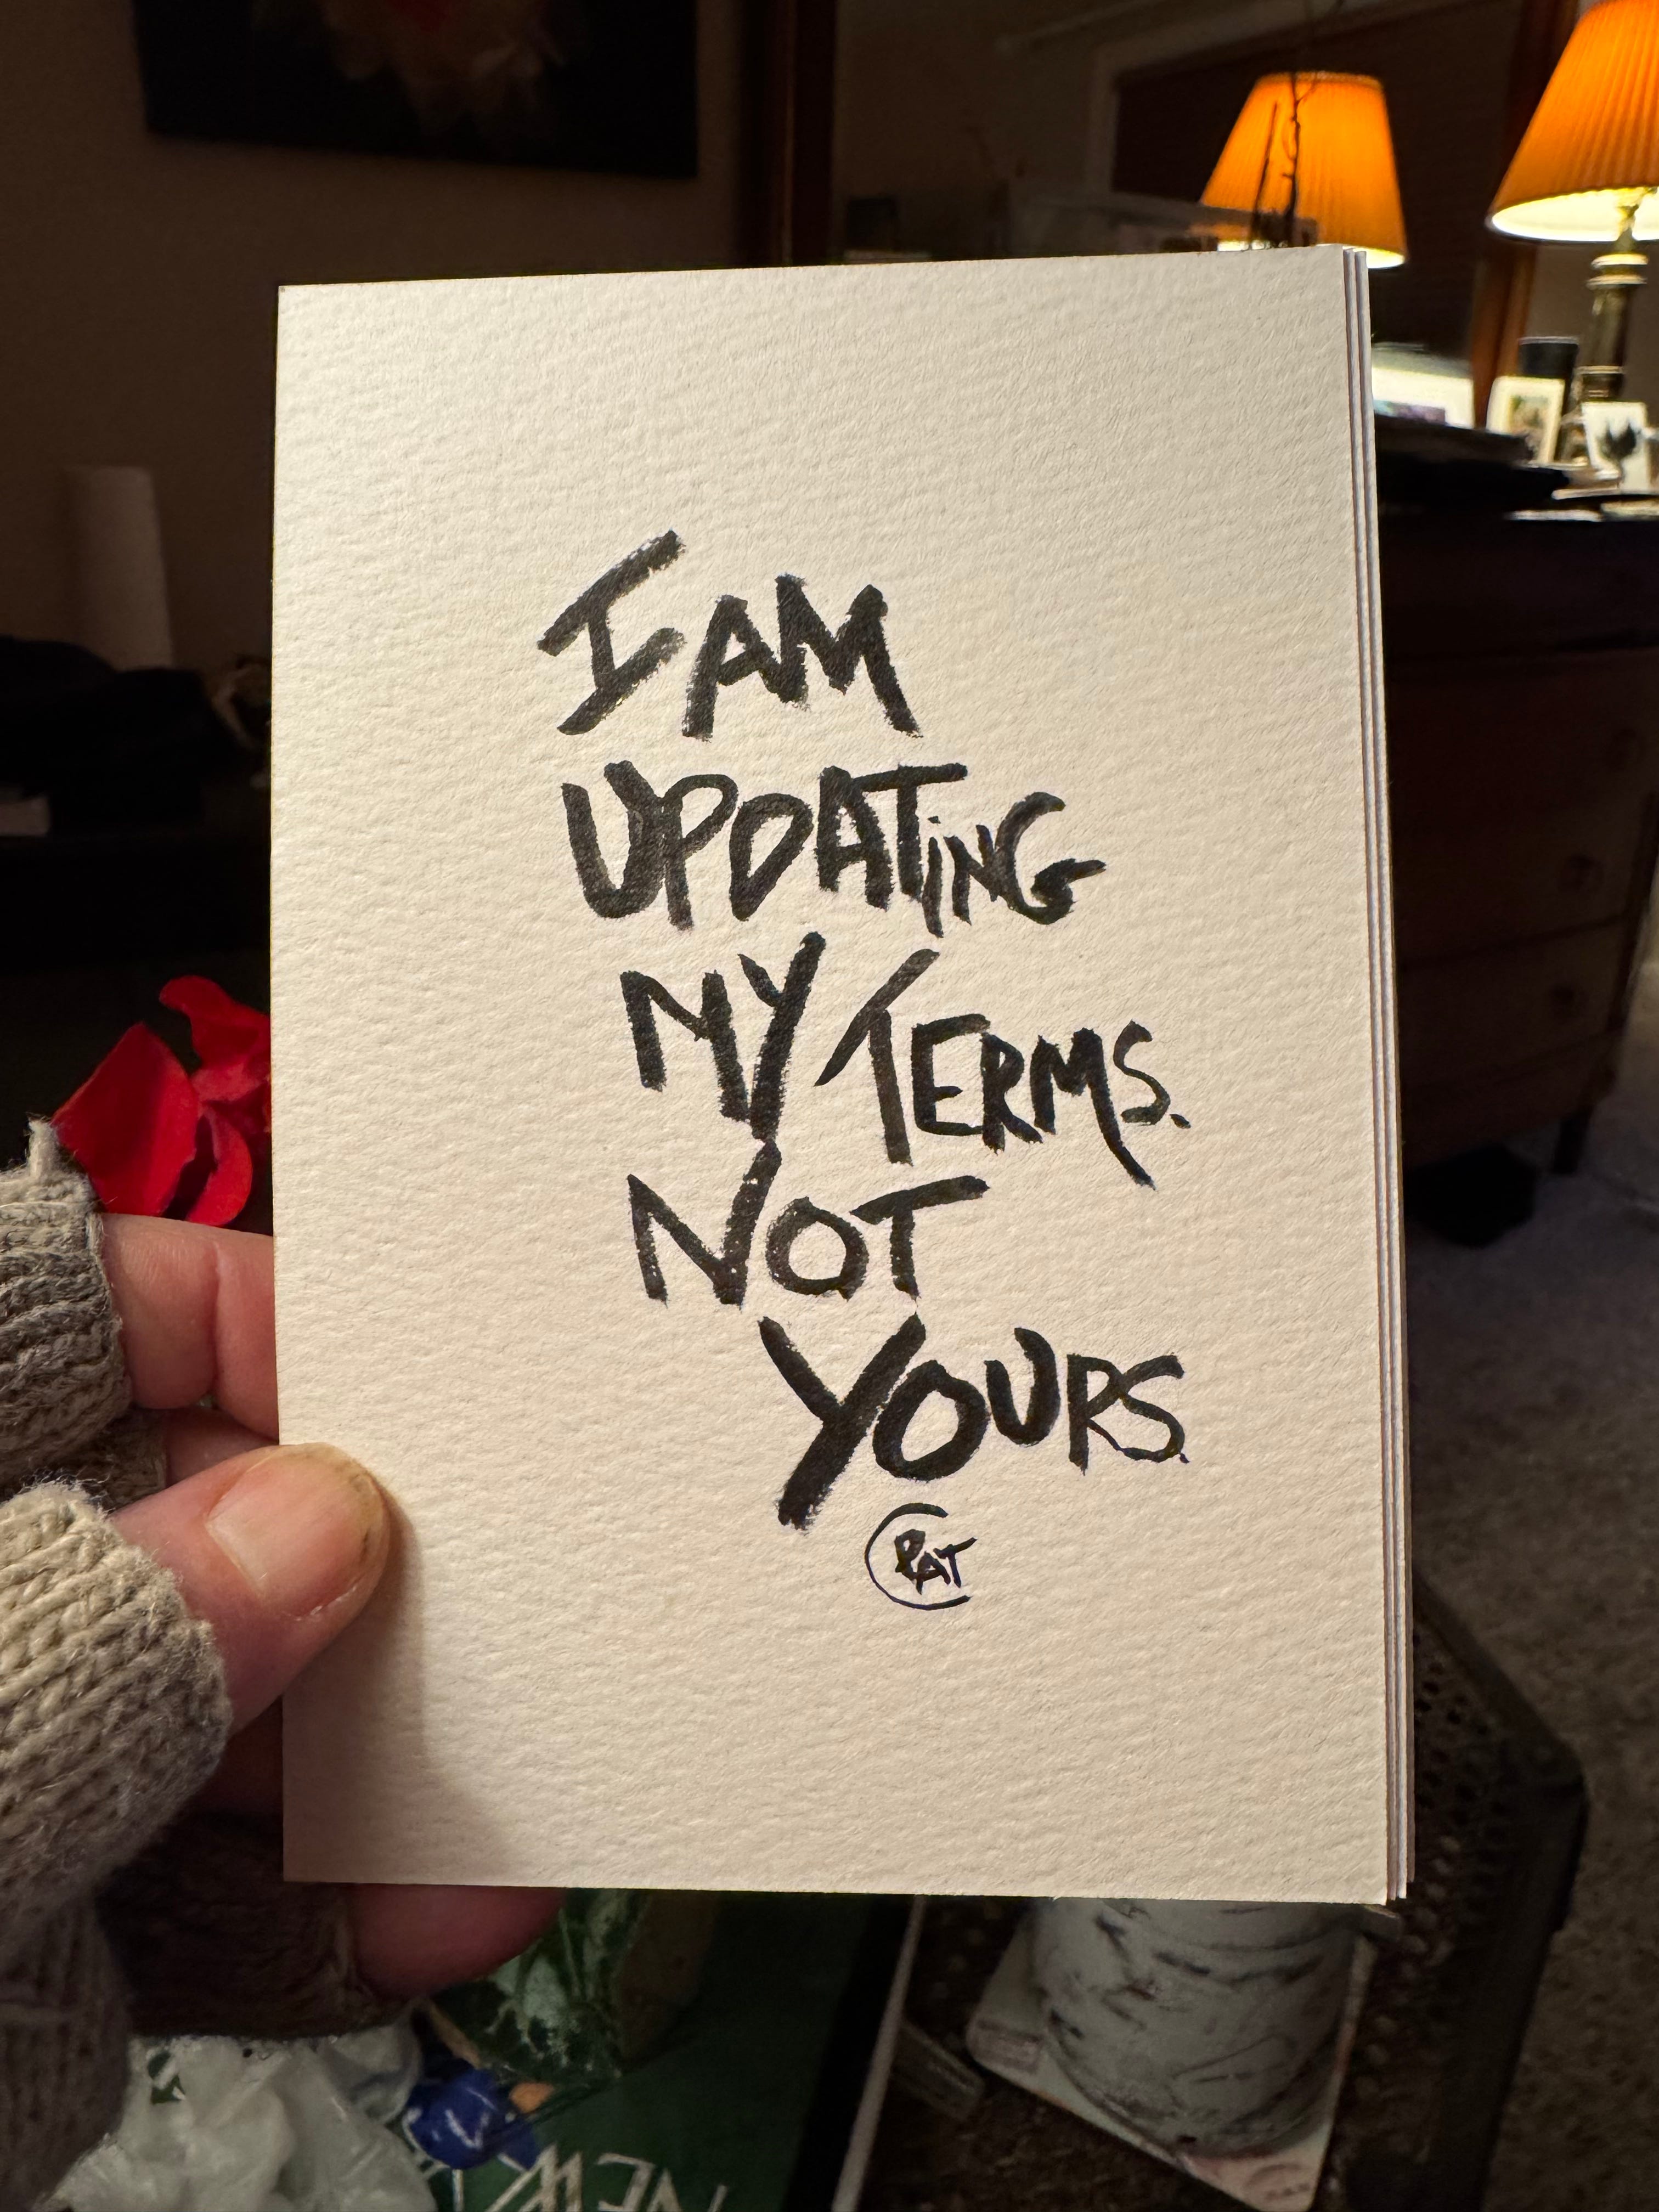 I AM
UPDATiNG
MY TERMS.
NOT
YOURS.
RAT
NEW